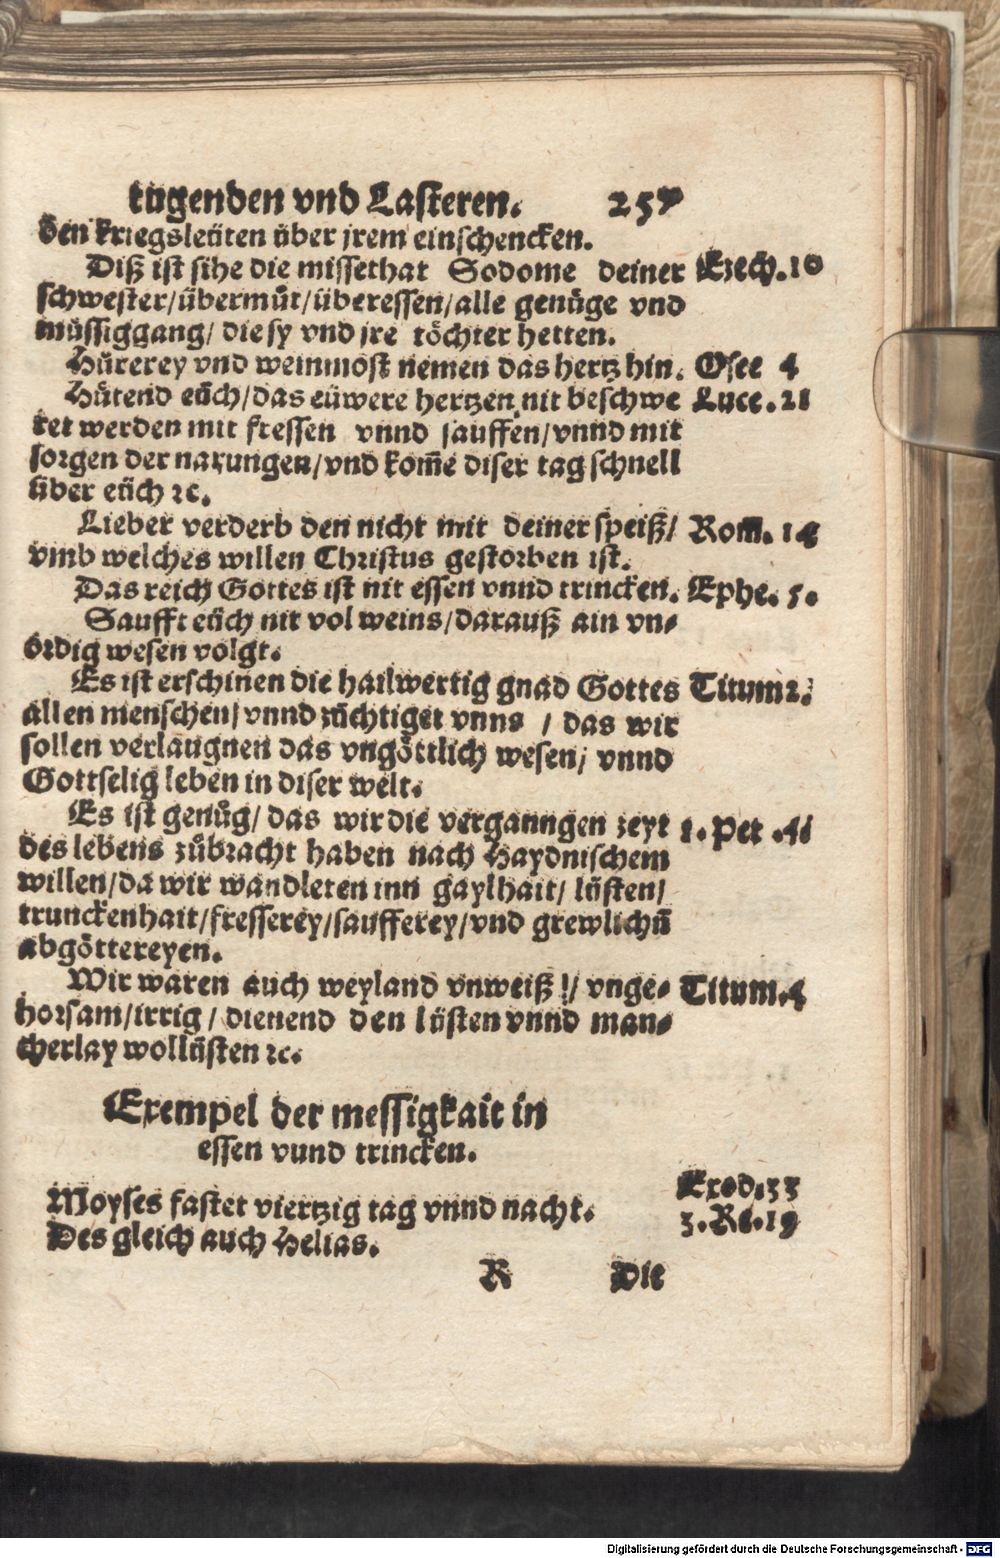 tugenden vnd Lasteren. 257
den kriegsleüten über jrem einschencken.
Diß ist sihe die missethat Sodome deiner Ezech. 16
schwester/übermůt/überessen/alle genůge vnd
müssiggang/ die sy vnd jre töchter hetten.
Hůrerey vnd weinmost nemen das hertz hin. Osee 4
Hůtend eüch/das eüwere hertzen nit beschwe Luce. 21
ret werden mit fressen vnnd sauffen/vnnd mit
sorgen der narungen/vnd kom̃e diser tag schnell
über eüch ꝛc.
Lieber verderb den nicht mit deiner speiß/ Rom. 14
vmb welches willen Christus gestorben ist.
Das reich Gottes ist nit essen vnnd trincken. Ephe. 5.
Saufft eüch nit vol weins/darauß ain vn⸗
ördig wesen volgt.
Es ist erschinen die hailwertig gnad Gottes Titum 2.
allen menschen/ vnnd züchtiget vnns / das wir
sollen verlaugnen das vngöttlich wesen/ vnnd
Gottselig leben in diser welt.
Es ist genůg/ das wir die verganngen zeyt 1. Pet. 4
des lebens zůbracht haben nach Haydnischem
willen/da wir wandleten inn gaylhait/ lüsten/
trunckenhait/fresserey/saufferey/vnd grewlichñ
abgöttereyen.
Wir waren auch weyland vnweiß!/ vnge⸗ Titum. 4
horsam/irrig / dienend den lüsten vnnd man⸗
cherlay wollüsten ꝛc.
Exempel der messigkait in
essen vnnd trincken.
Moyses fastet viertzig tag vnnd nacht. Exod. 33
Des gleich auch Helias. 3. Re. 19
R Die
Digitalisierung gefördert durch die Deutsche Forschungsgemeinschaft - DFG